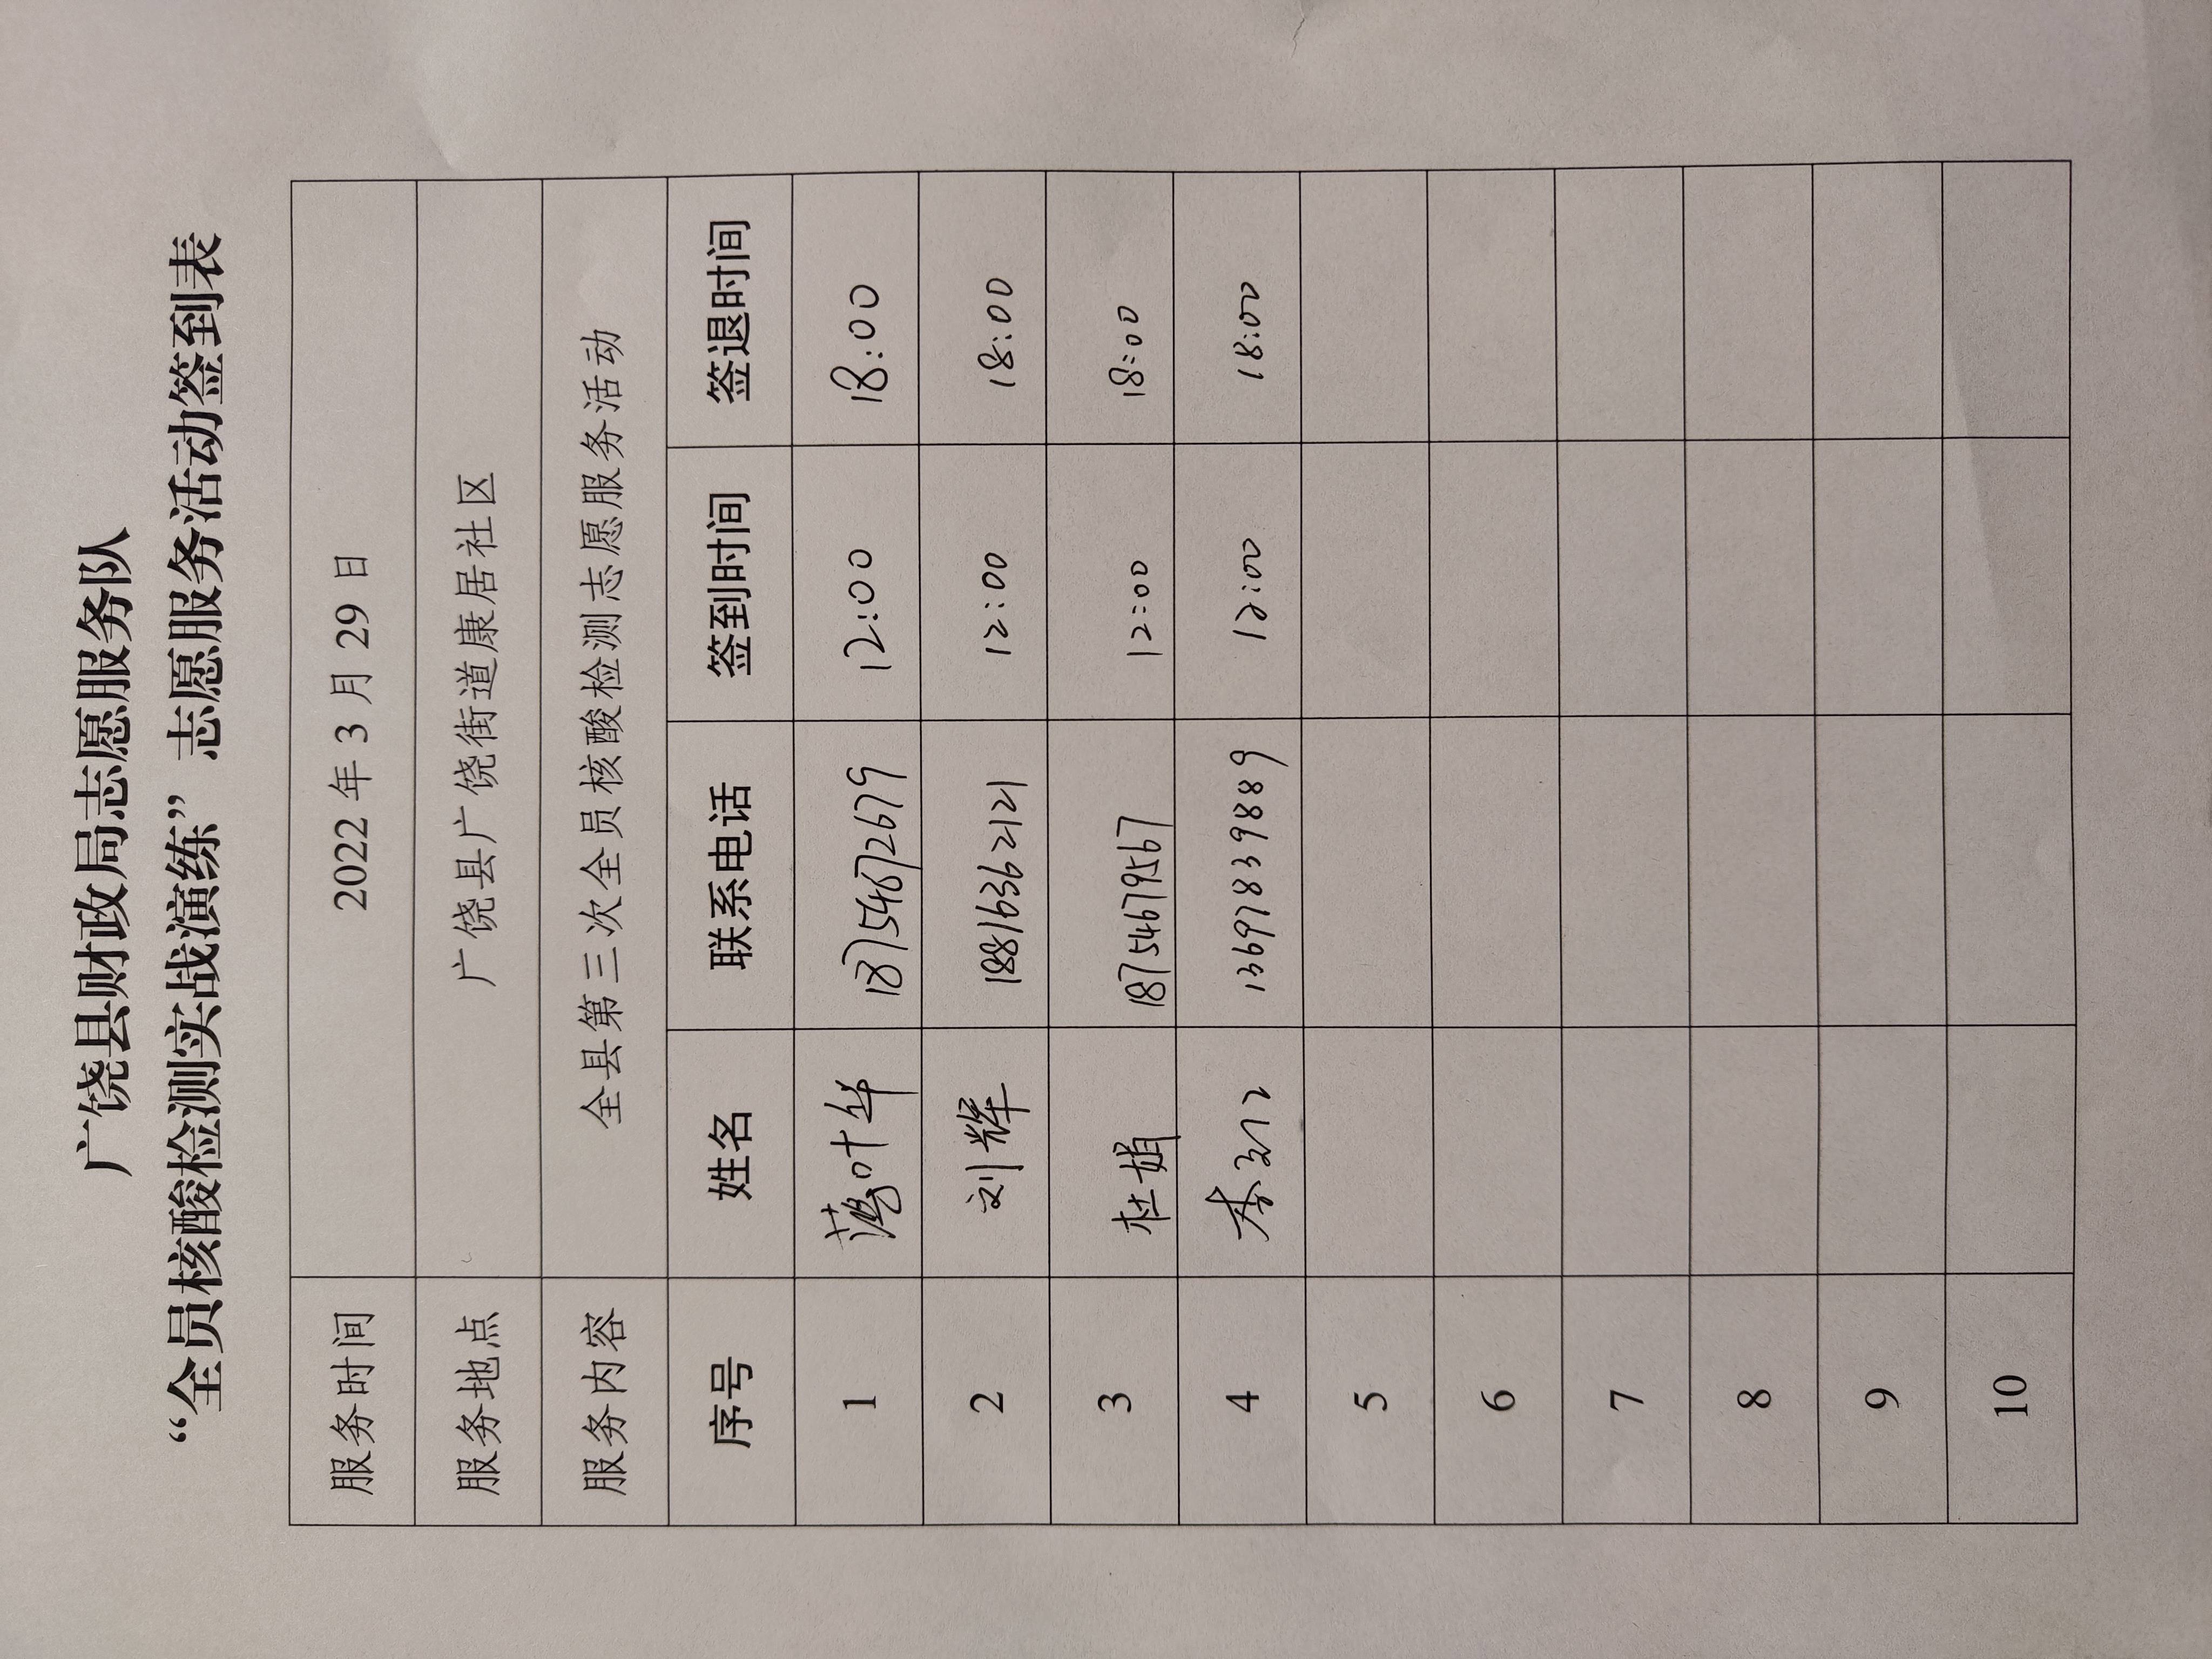 广饶县财政局志愿服务队
“全员核酸检测实战演练”志愿服务活动签到表
服务时间 2022 年 3 月 29 日
服务地点 广饶县广饶街道康居社区
服务内容 全县第三次全员核酸检测志愿服务活动
序号 姓名 联系电话 签到时间 签退时间
1 叶华 18754672679 12:00 18:00
2 刘辉 18816362121 12:00 18:00
3 杜娟 18754679567 12:00 18:00
4 13697839889 12:00 18:00
5
6
7
8
9
10